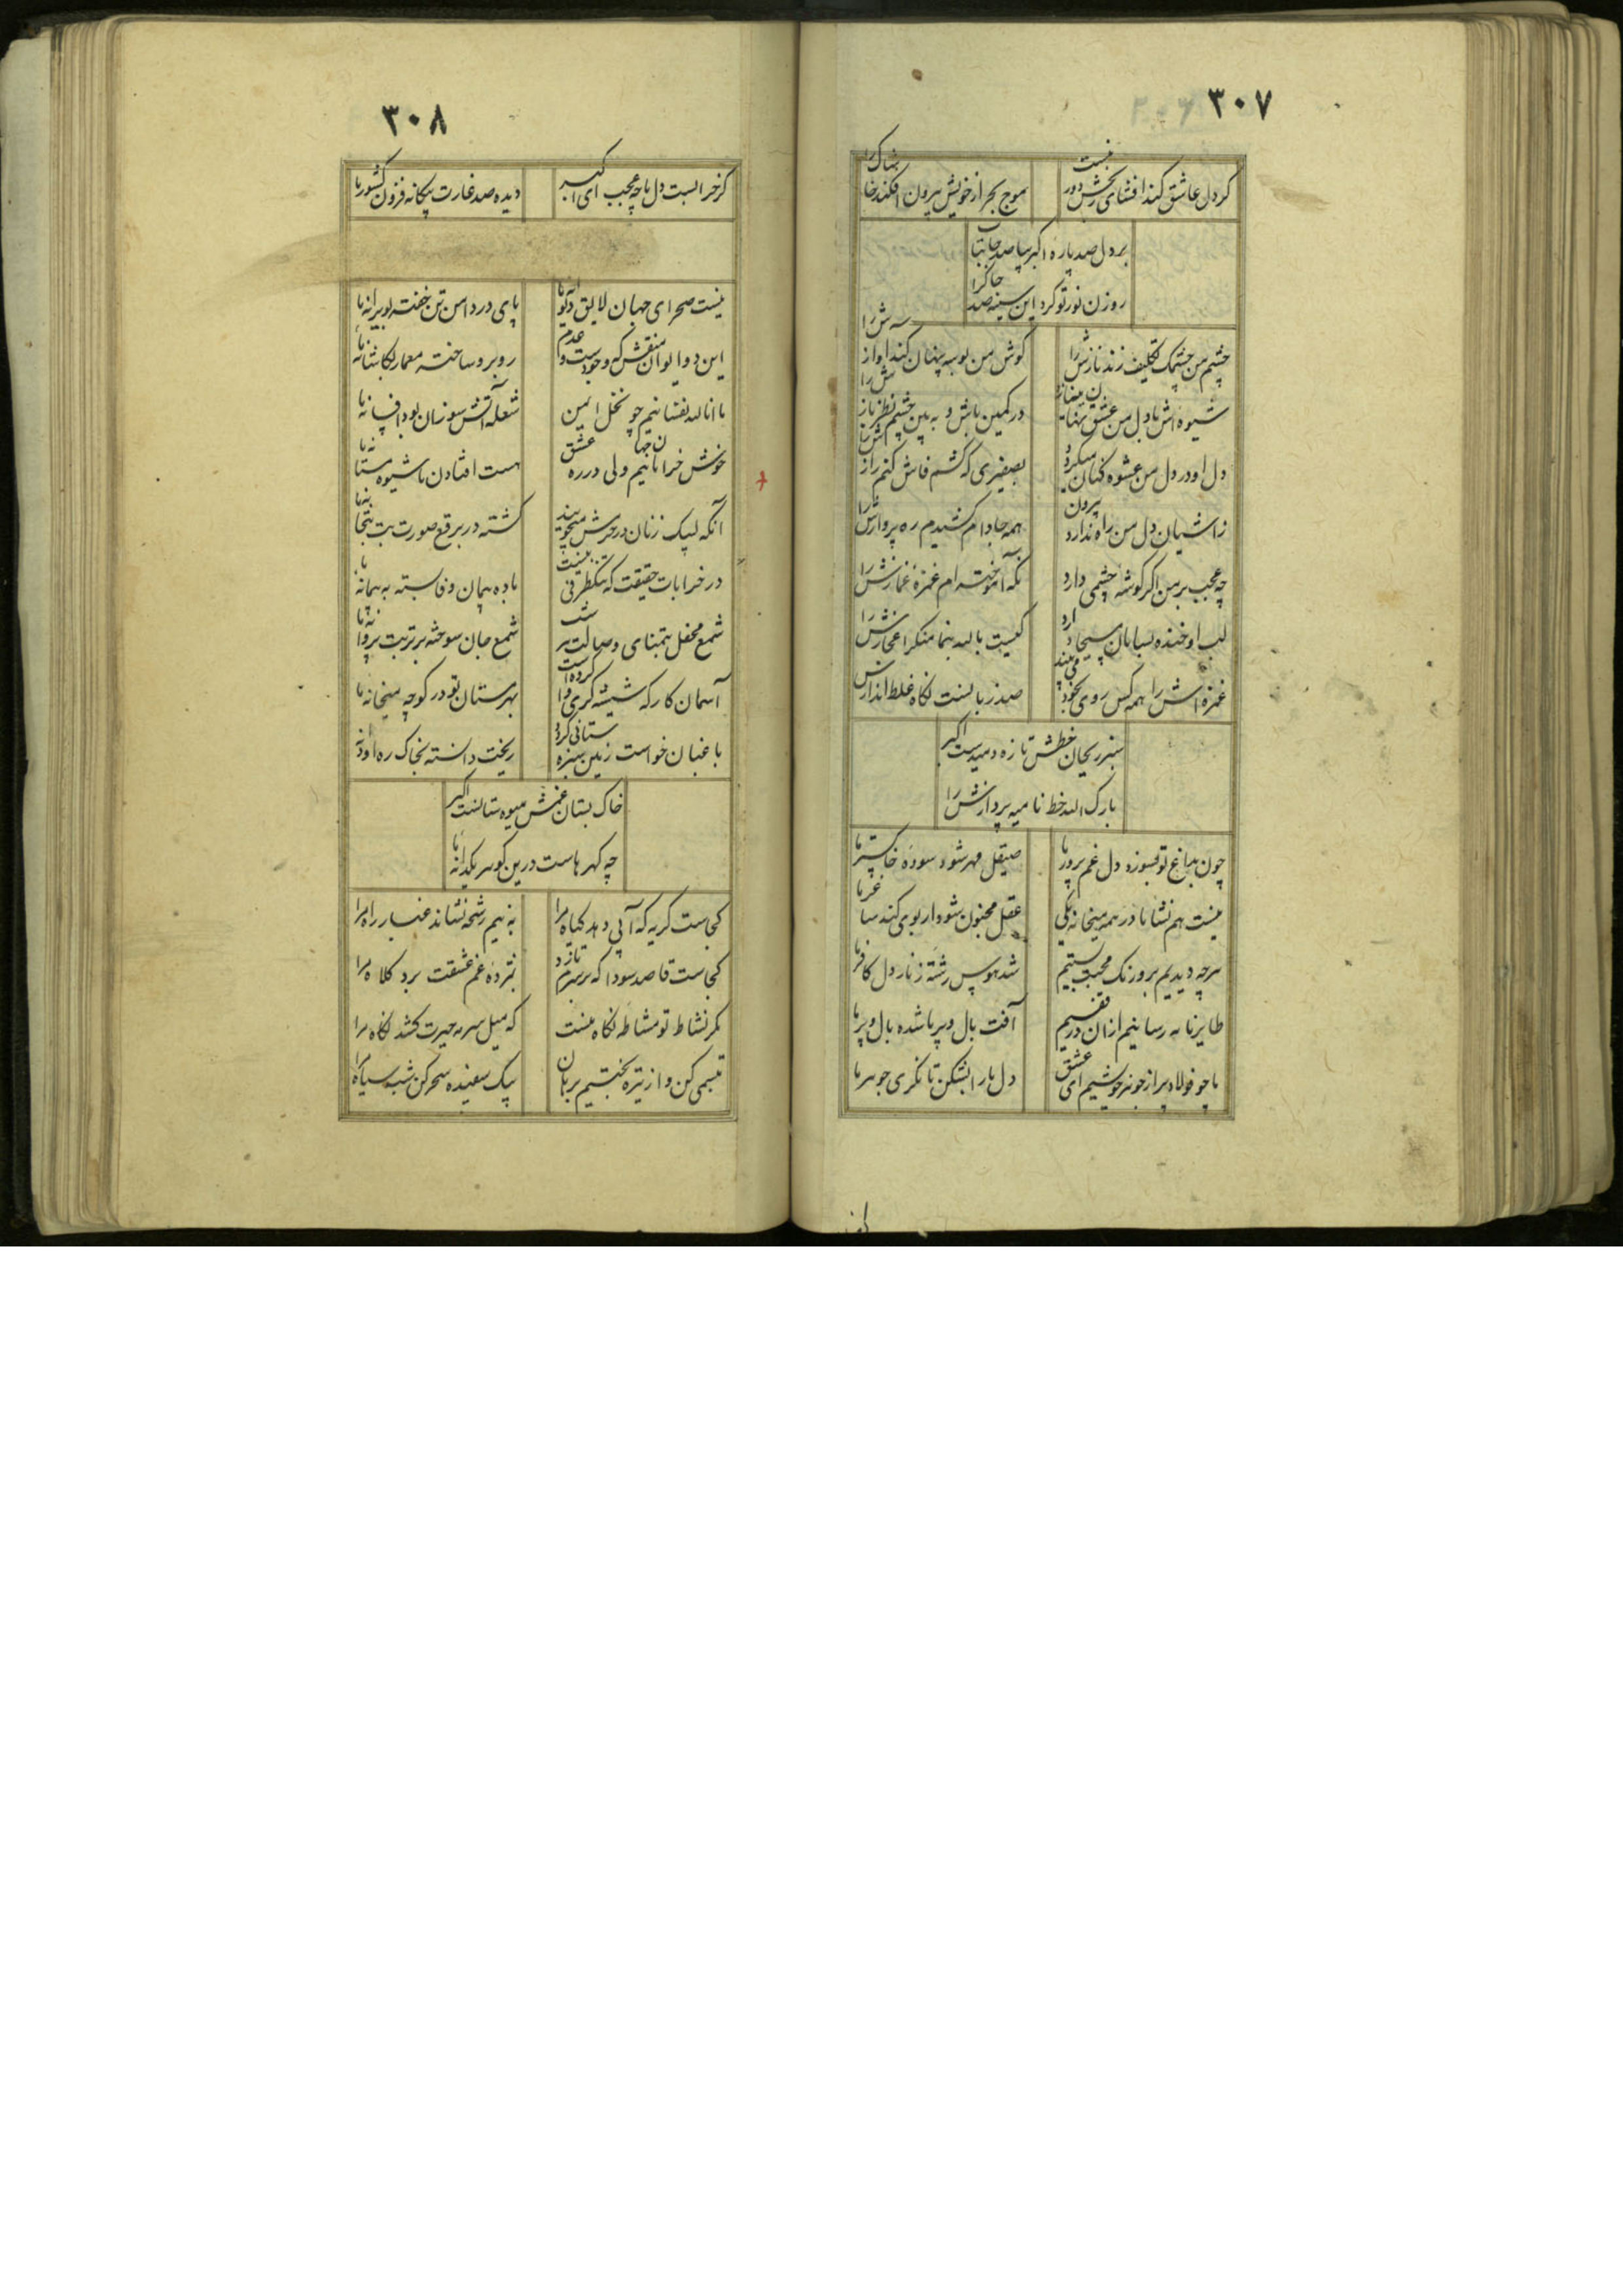 ۳۰۷
کر دل عاشق کند افشای رخش دور نیست
موج بحر از خویش بیرون افکند خاشاک را
بر دل صد پاره اکبر بیا صد جا بتاب
روزن نور تو کرد این سینه صد چاک را
چشم من چشمک تکلیف زند نازش را
کوش من بوسه پنهان کند اواز ش را
شیوه اش با دل من عشق نهانی
در کمین باش و به بین چشم نظر باز ش را
دل او در دل من عشوه کنان میکرد
بصفیری که کشم فاش کنم راز اش را
ز اشیان دل من راه ندارد بیرون
همه جا دام کشیدم ره پروازش را
چه عجب بر من اکر کوشه چشمی دارد
نکه آموخته ام غمزه غمازش را
لب او خنده بسامان مسیحا دارد
کیست بالله بنما منکر اعجازش را
غمزه اش را همه کس روی بخود می بیند
صد زبانست نکاه غلط اندازش
سبز ریحان خطش تازه دمیدست اکبر
بارک الله خط نامیه پردازش را
چون بداغ تو بسوزد دل غم پرور ما
صیقل مهر شود سوده خاکستر ما
نیست هم نشا ما در همه میخانه یکی
عقل مجنون شود ار بوی کند ساغر ما
هرچه دیدیم برو رنک محبت بستیم
شد هوس رشته زنار دل کافر ما
طایر نامه رسانیم از ان در قفسیم
آفت بال و پر ما شده بال و پر ما
ما چو فولاد پر از جوهر خوشیم ای عشق
دل ما را بشکن تا نکری جوهر ما
۳۰۸
کر خرابست دل ما چه عجب ای اکبر
دیده صد غارت بیکانه فزون کشور ما
نیست صحرای جهان لایق دیوانه ما
پای در دامن تن خفت بویرانه ما
این دو ایوان منقش که وجودست و عدم
روبرو ساخته معمار کاشانه ما
ما انالله نفشانیم چو نخل ایمن
شعله آتش سوزان بود افسانه ما
خوش خرامانیم ولی در ره عشق
هست افتادن ما شیوه مستانه ما
آنکه لبیک زنان در حرمش میجویند
کشته در برقع صورت بت بتخانه ما
در خرابات حقیقت که تنکظرفی نیست
باده پیمان وفا بسته به پیمانه ما
شمع محفل بتمنای وصالت
شمع جان سوخته بر تربت پروانه ما
آسمان کارکه شیشه کری وا کرده است
بهر مستان تو در کوچه میخانه ما
باغبان خواست زمین سبزه ستانی کرد
ریخت دانسته بخاک ره او دانه
خاک بستان غمش میوه ستانست اکبر
چه کهرهاست درین کوهر یکدانه ما
کجاست کریه که آبی دهد کیاه مرا
به نیم رشحه نشاند غبار راه مرا
کجاست قاصد سودا که بر سرم تازد
نبرده غم عشقت برد کلاه مرا
مکر نشاط تو مشاطه نکاه نیست
که میل سرمه حیرت کشد نکاه مرا
تبسمی کن و از تیره بختیم برهان
بیک سفیده سحر کن شب سیاه مرا